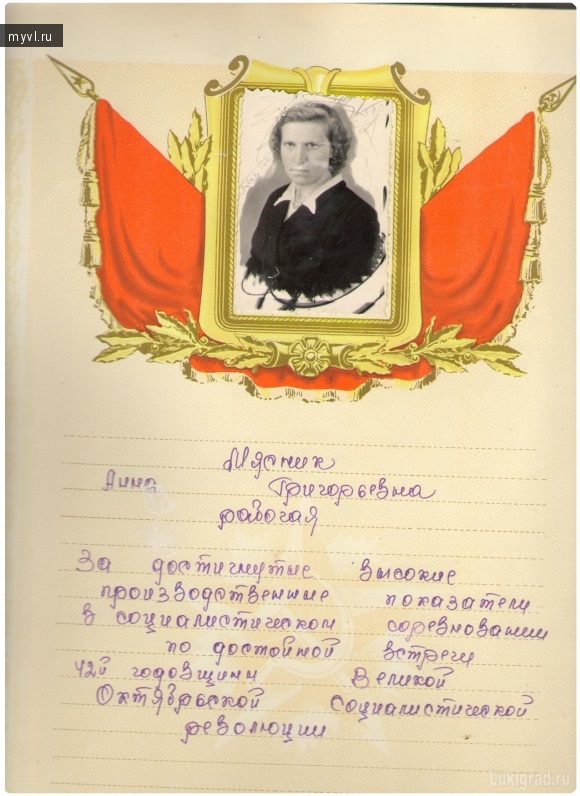 myvl.ru
Мясник
Анна Григорьевна
рабочая
За достигнутые высокие
производственные показатели
в социалистическом соревновании
по достойной встречи
42й годовщины Великой
Октябрьской Социалистической
революции
Lukigrad.ru